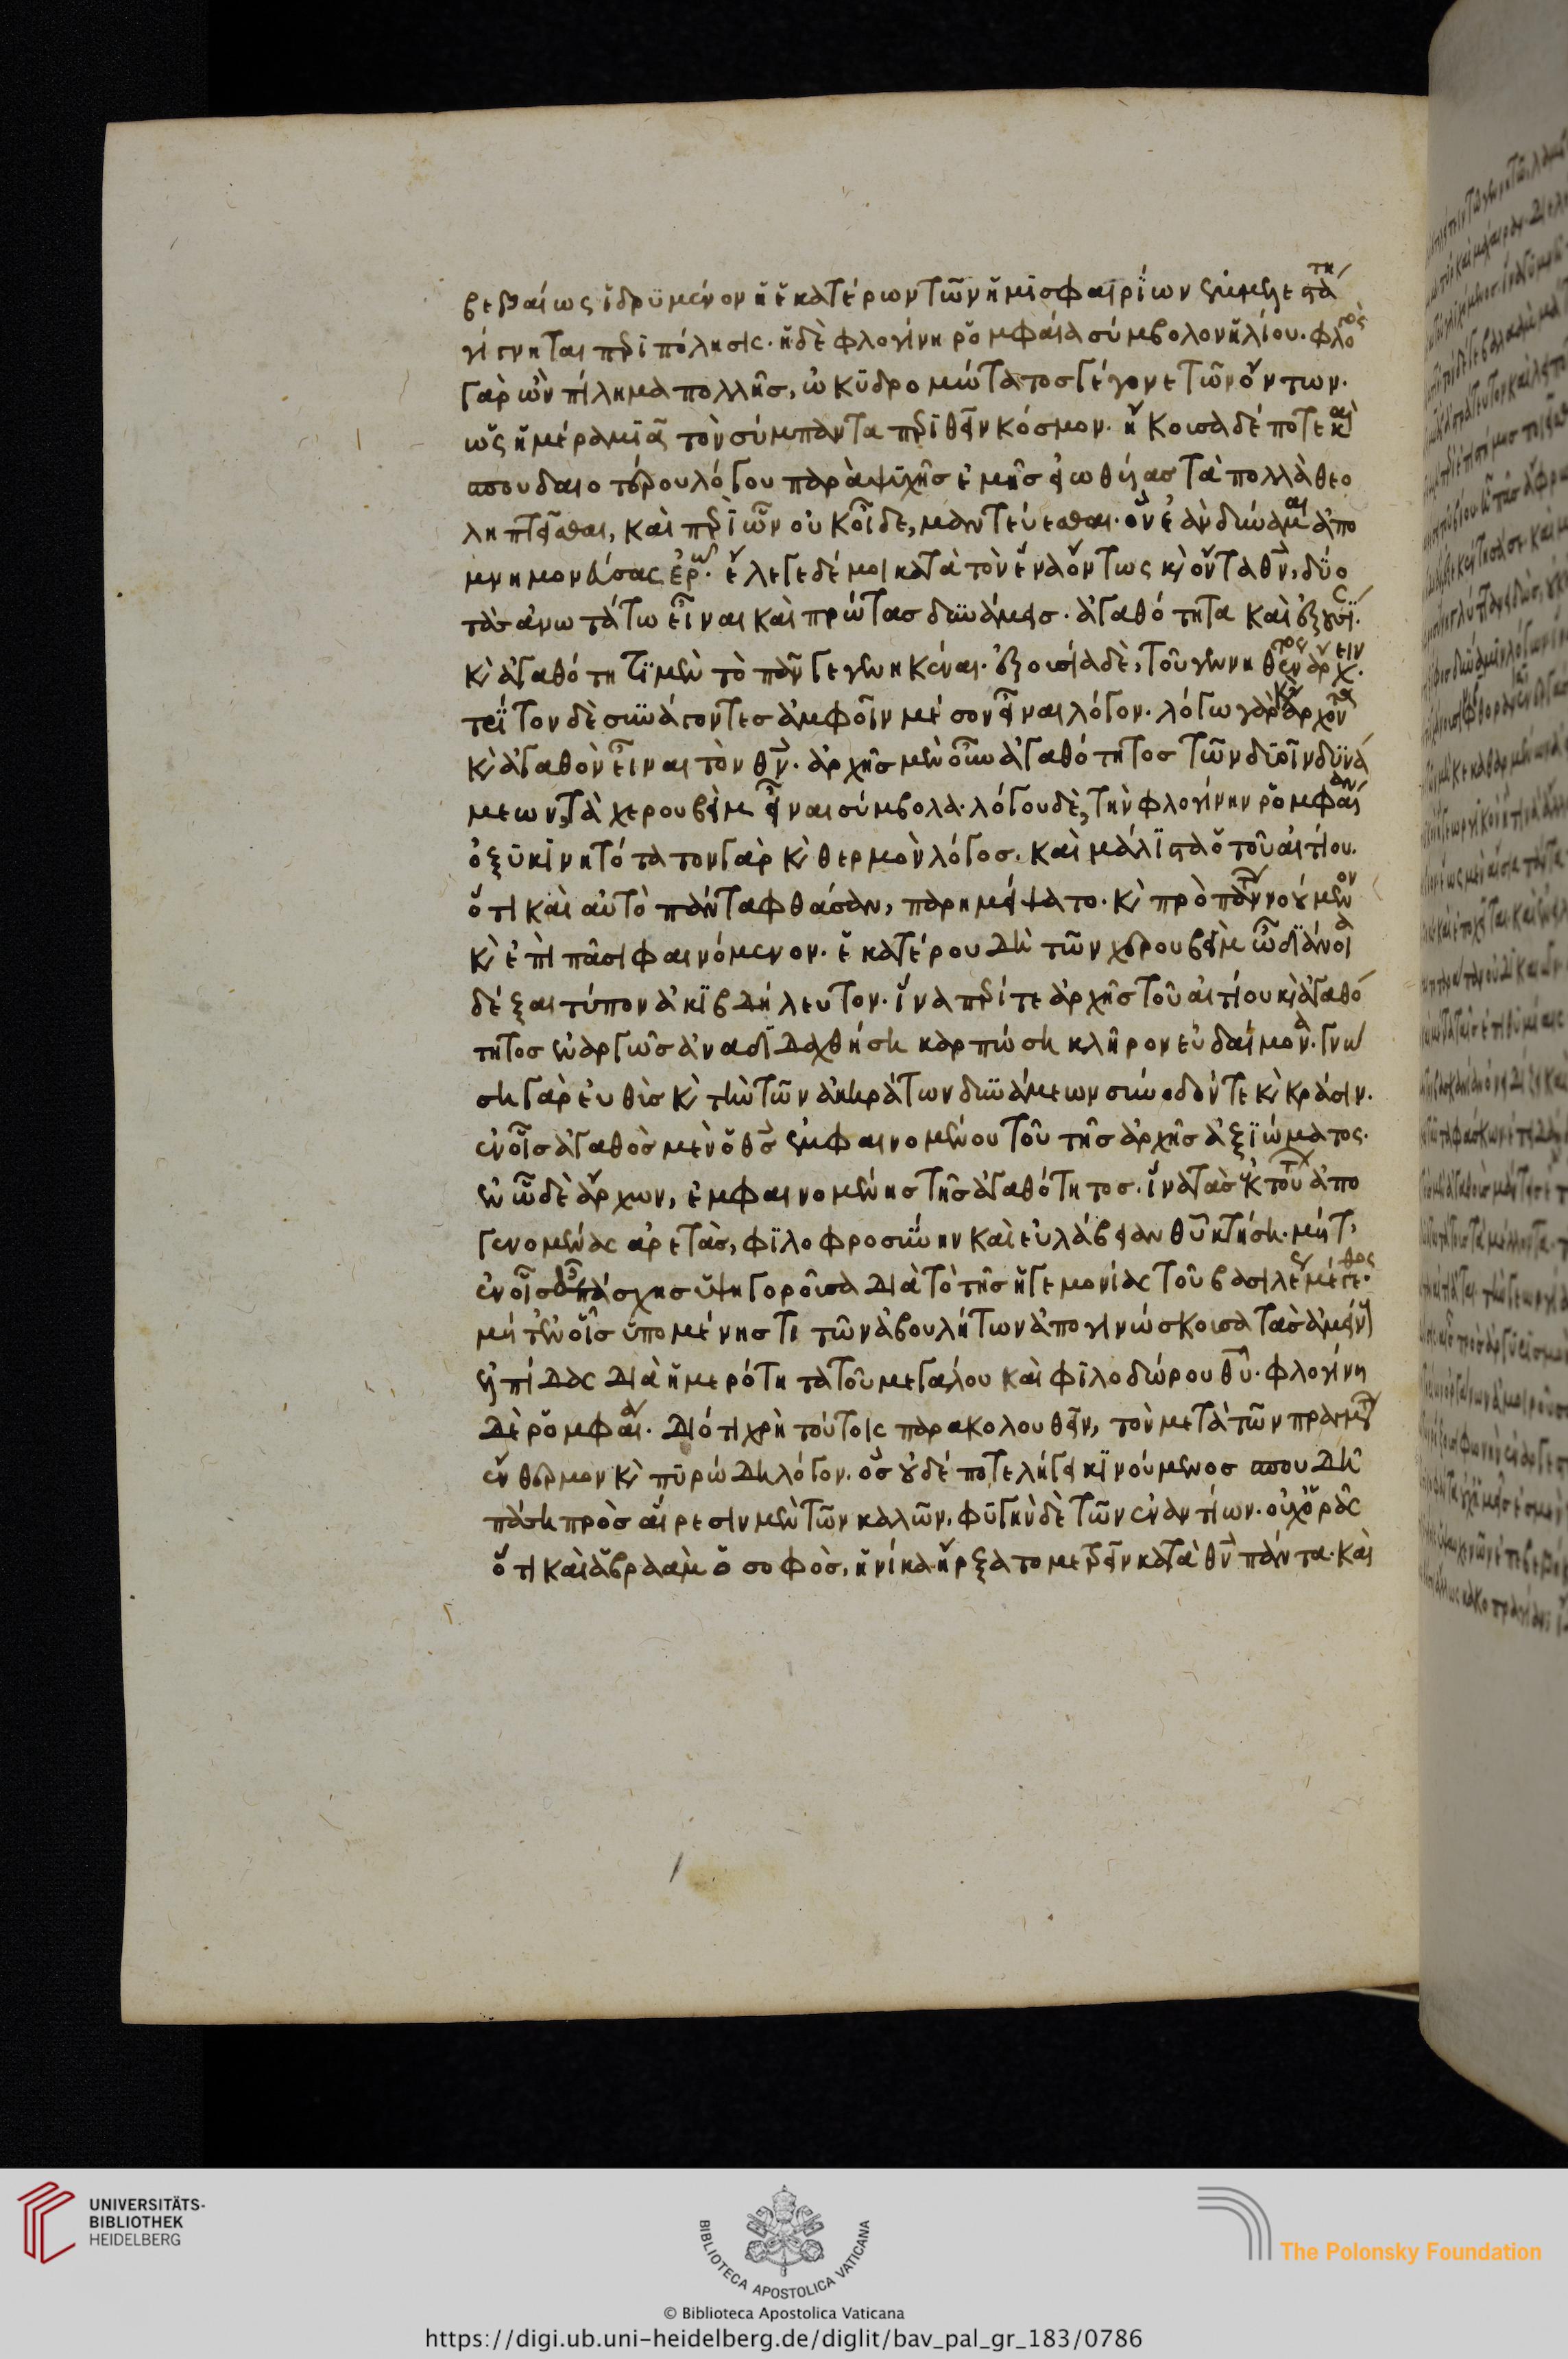 βεβαίως ἵδρϋμένον ἢ ἑκατέριον τῶν ἡμισφαιρίων ἐὰν μὲν ετα τη
γίγνηται περιπόλησις. ἡ δὲ φλογίνη ῥομφαία σύμβολον ἡλίου. φλογὸς
γὰρ ὢν πίλημα πολλῆσ, ὠκϋδρομώτατος γέγονε τῶν ὄντων.
ὡς ἡμέρα μϊᾶ τὸν σύμπαντα περιθεῖν κόσμον. ἤκουσα δέ ποτε καὶ
σπουδαιοτέρου λόγου παρὰ ψϋχῆσ ἐμῆσ εἰωθείασ τὰ πολλὰ θεο
ληπτεῖσθαι, καὶ περὶ ὧν οὐκ οἶδε, μαντεύεσθαι. ὃν ἐὰν δύναμαι ἀπο
μνημονεύσας ἐρῶ. ἔλεγε δέ μοι κατὰ τὸν ἕνα ὄντως κ ὄντα θν, δύο
τὰσ ἀνωτάτω εἶναι καὶ πρώτασ δυνάμεισ. ἀγαθότητα καὶ ἐξουσΐ.
κ ἀγαθότητϊ μὲν τὸ πᾶν γεγεννηκέναι. ἐξουσία δὲ, τοῦ γεννηθέντος ἄρχειν.
τρΐτον δὲ συνάγοντεσ ἀμφοῖν μέσον εἶναι λόγον. λόγω γὰρ κ ἄρχοντα
κ ἀγαθὸν εἶναι τὸν θν. ἀρχῆσ μὲν οὖν ἀγαθότητοσ τῶν δυοῖν δϋνά
μεων, τὰ χερουβεὶμ εἶναι σύμβολα. λόγου δὲ, τὴν φλογίνην ῥομφαίαν
ὀξϋκϊνητότατον γὰρ κ θερμὸν λόγοσ. καὶ μάλϊστα ὁ τοῦ αἰτίου.
ὅτι καὶ αὐτὸ πάντα φθάσαν, παρημείψατο. κ πρὸ πάντων νοούμενον
κ ἐπὶ πᾶσι φαινόμενον. ἑκατέρου δὴ τῶν χερουβεὶμ ὦ διάνοια
δέξαι τύπον ἀκϊβδήλευτον. ἵνα περί τε ἀρχῆσ τοῦ αἰτίου κ ἀγαθό
τητοσ ἐναργῶσ ἀναδϊδαχθήση καρπώση κλῆρον εὐδαίμονα. γνώ
ση γὰρ εὐθὺσ κ τὴν τῶν ἀκηράτων δυνάμεων σύνοδόν τε κ κράσιν.
ἐν οἷσ ἀγαθὸσ μὲν ὁ θσ ἐμφαινομένου τοῦ τῆσ ἀρχῆσ ἀξϊώματος.
ἐν ὧ δὲ ἄρχων, ἐμφαινομένησ τῆσ ἀγαθότητοσ. ἵνα τὰσ ἐκ τούτων ἀπο
γενομένας ἀρετὰσ, φϊλοφροσύνην καὶ εὐλάβειαν θῦ κτήση. μήτ'
ἐν οἷσ εὖ πάσχησ ὑψηγοροῦσα διὰ τὸ τῆσ ἡγεμονίας τοῦ βασιλέως μέγεθος.
μήτ' ἐν οἷσ ὑπομένησ τι τῶν ἀβουλήτων ἀπογινώσκουσα τὰσ ἀμείνους
ἐλπίδας διὰ ἡμερότητα τοῦ μεγάλου καὶ φϊλοδώρου θῦ. φλογίνη
δὲ ῥομφαία. διότι χρὴ τούτοις παρακολουθεῖν, τὸν μετὰ τῶν πραγμάτων
ἔνθερμον κ πϋρώδη λόγον. ὃσ οὐδέποτε λήγει κϊνούμενοσ σπουδῆ
πάση πρὸσ αἵρεσιν μὲν τῶν καλῶν, φϋγὴν δὲ τῶν ἐναντίων. οὐχ ὁρᾶς
ὅτι καὶ ἀβραὰμ ὁ σοφὸσ, ἡνίκα ἤρξατο μετρεῖν κατὰ θν πάντα. καὶ
UNIVERSITÄTS-
BIBLIOTHEK
HEIDELBERG
BIBLIOTECA APOSTOLICA VATICANA
The Polonsky Foundation
© Biblioteca Apostolica Vaticana
https://digi.ub.uni-heidelberg.de/diglit/bav_pal_gr_183/0786